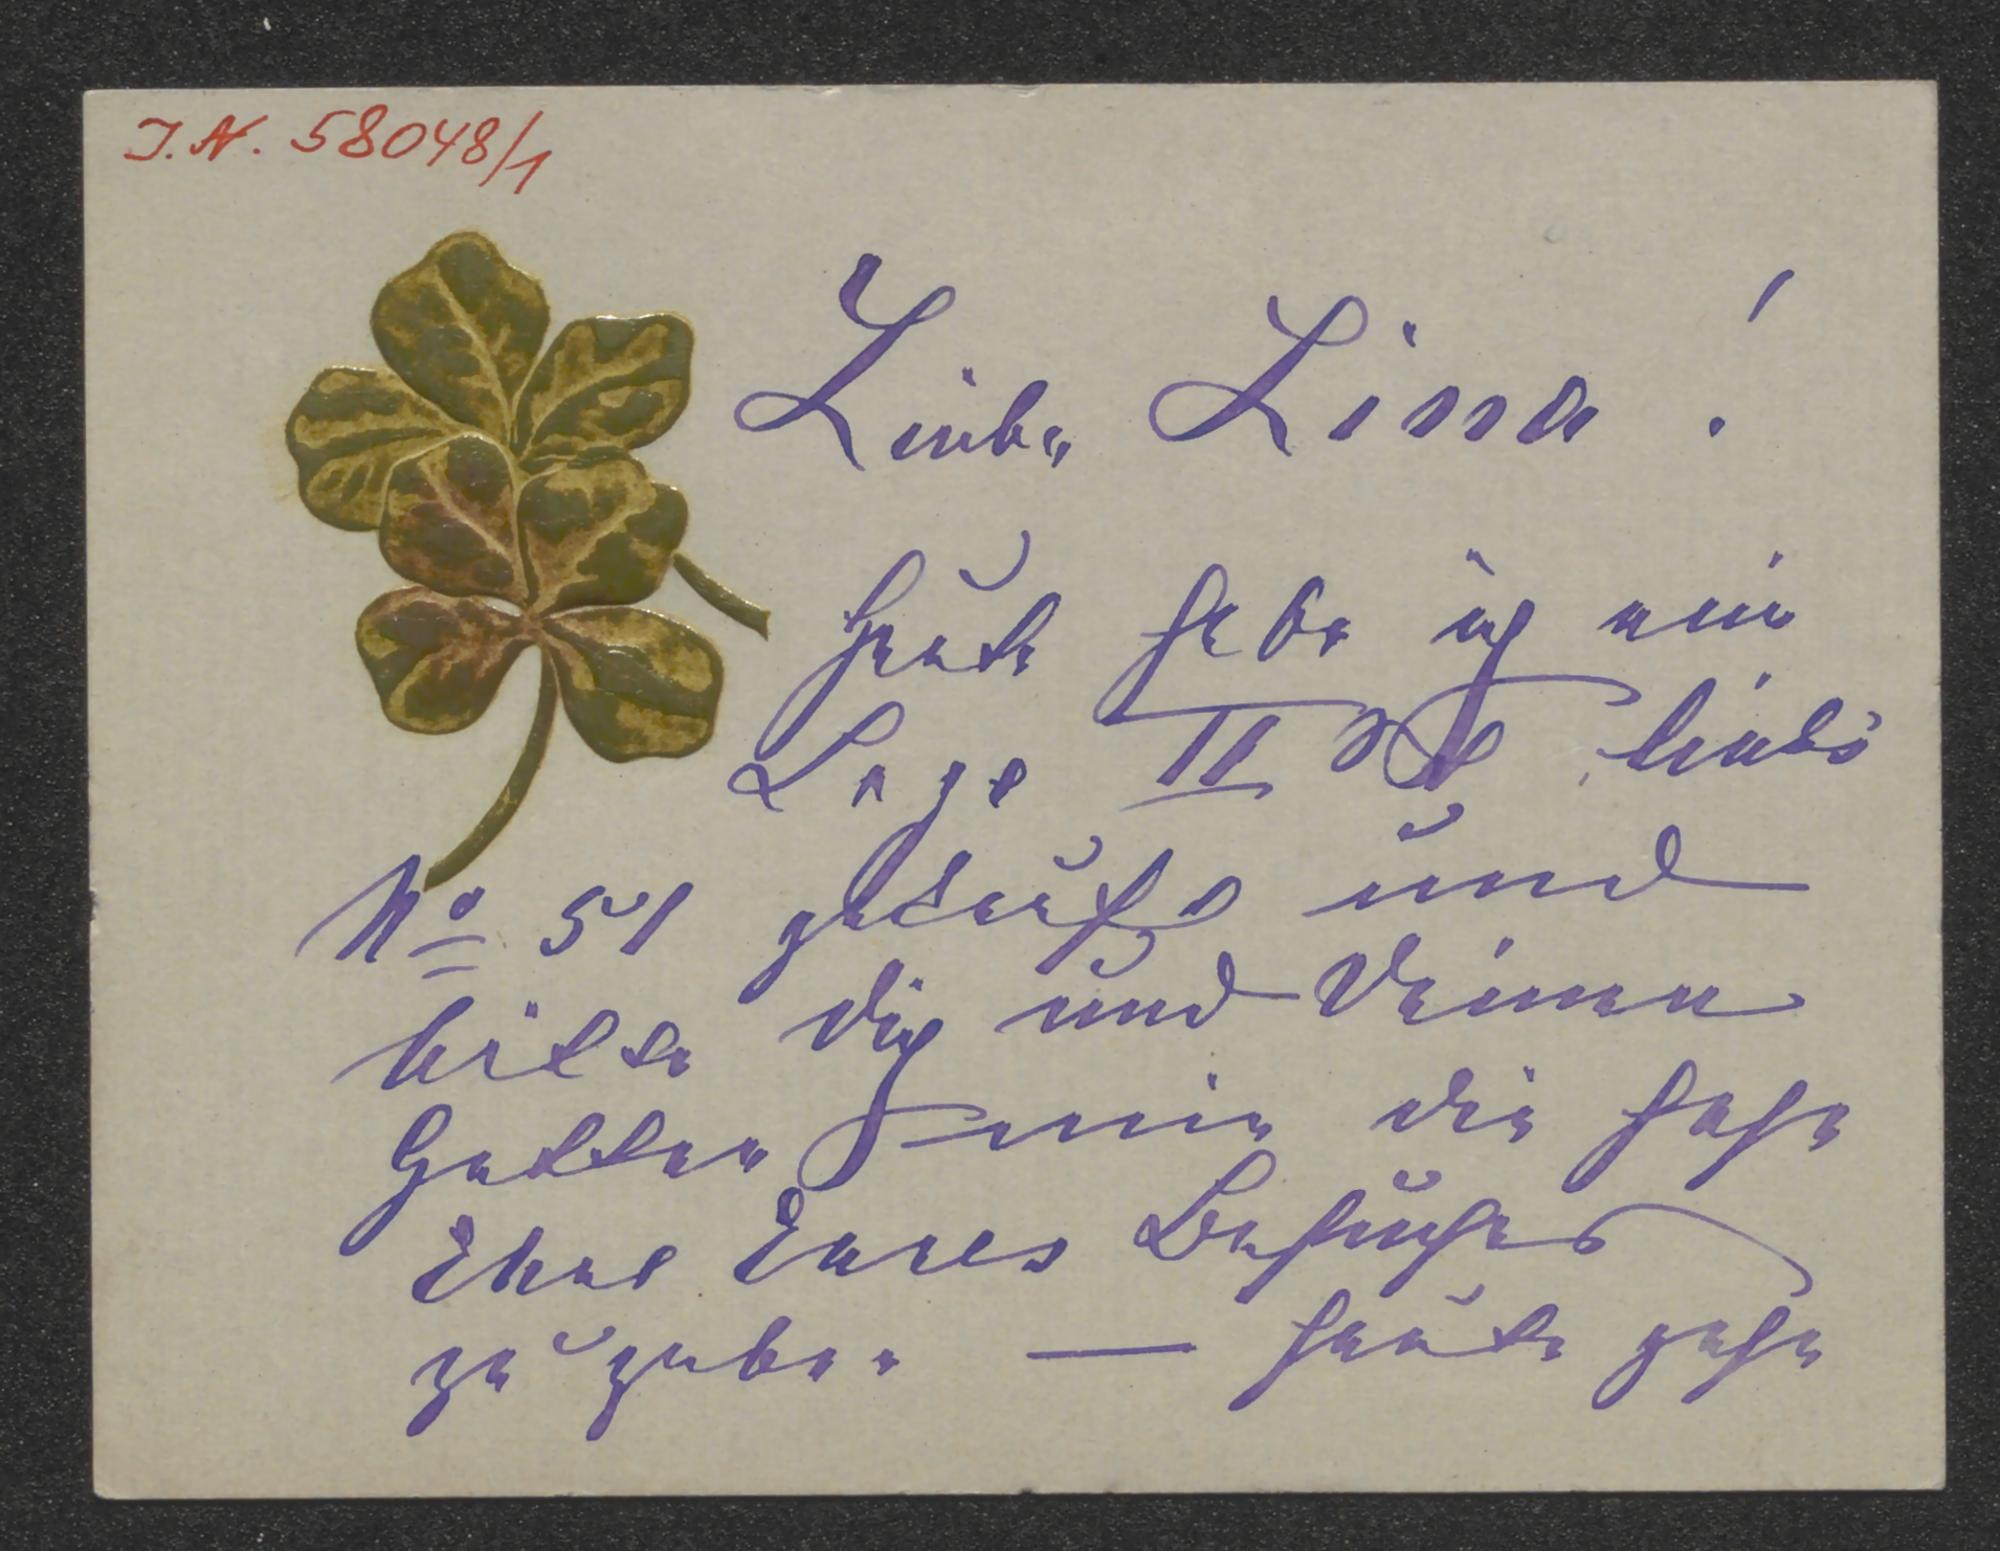 J. N. 58048/1
Liebe Lina!
Heute habe ich eine
Loge II links
No 51 gekauft und
bitte dich und Deinen
Gatten mir die hohe
Ehre Eures Besuches
zu geben. — heute gehe